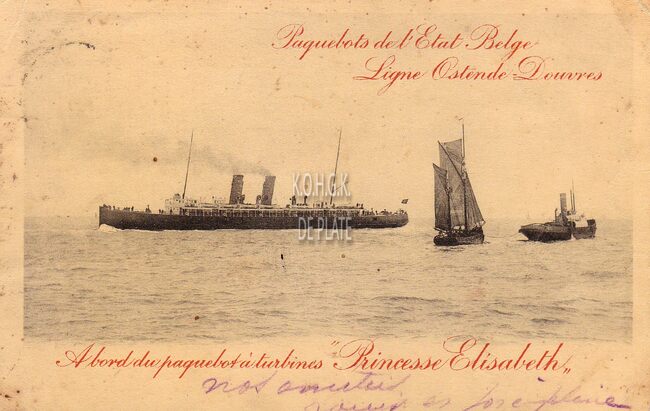 Paquebots de l'Etat Belge
Ligne Ostende-Douvres
K.O.H.G.K.
DE PLATE
A bord du paquebot à turbines "Princesse Elisabeth„
nos